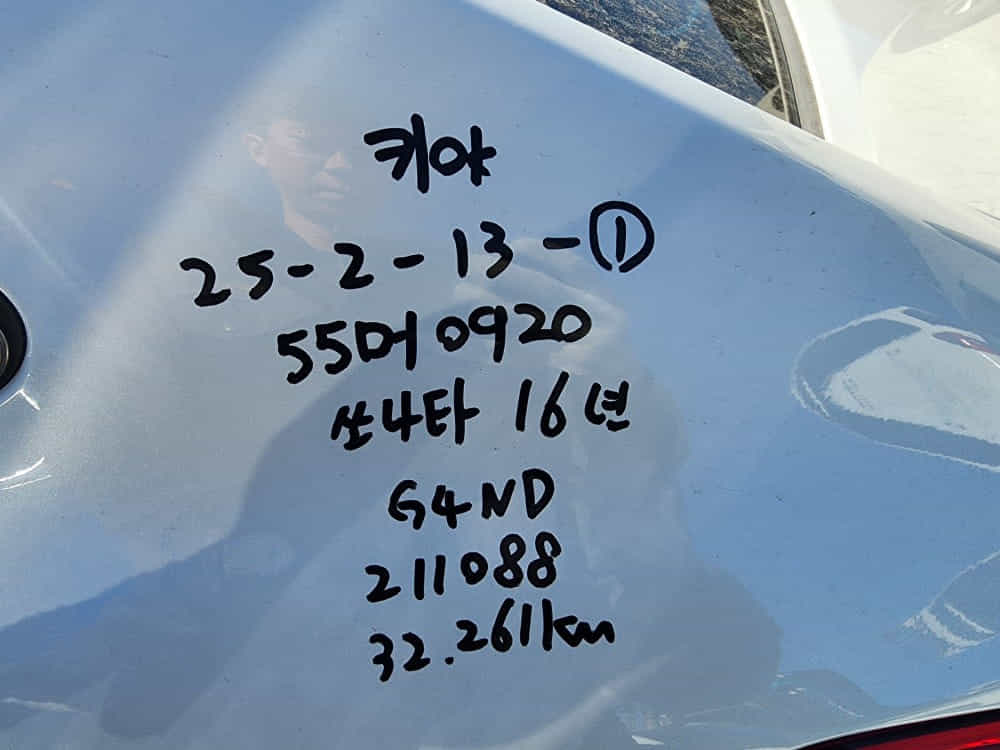 키야
25-2-13-①
55머0920
쏘나타 16년
G4ND
211088
32.261km